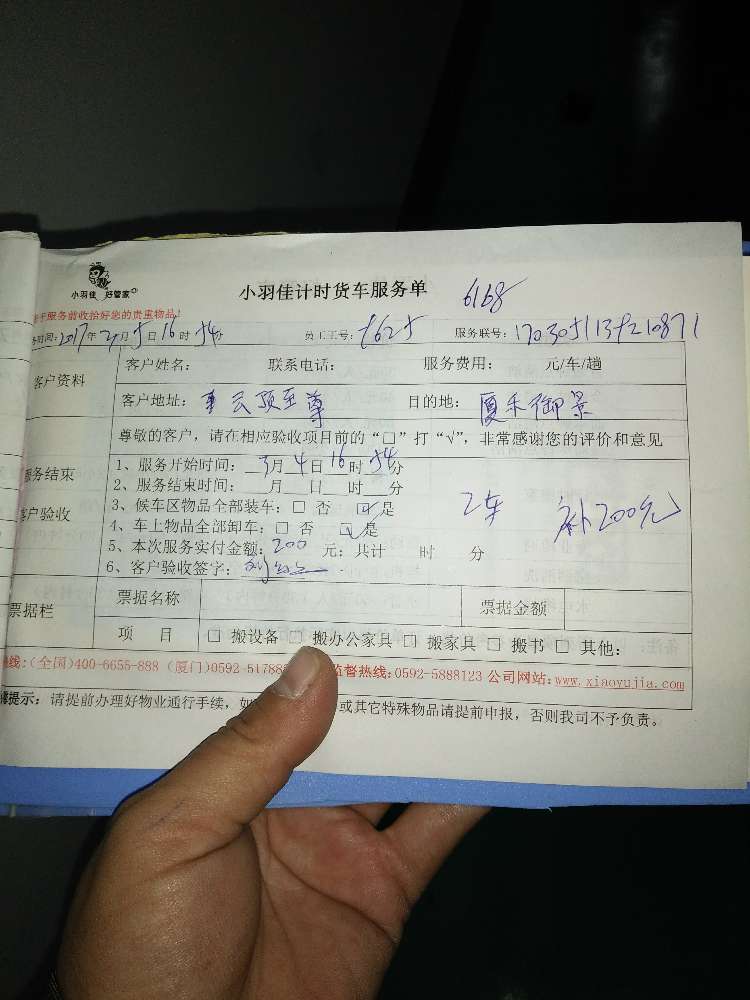 小羽佳 好管家
小羽佳计时货车服务单 6168
服务前收拾好您的贵重物品!
时间:2017年3月5日16时54分 员工工号: 服务联号:
客户资料
客户姓名: 联系电话: 服务费用: 元/车/趟
客户地址: 云顶至尊 目的地: 厦禾御景
尊敬的客户，请在相应验收项目前的“□”打“√”,非常感谢您的评价和意见
服务结束
客户验收
1、服务开始时间: 3月4日16时54分
2、服务结束时间: 月 日 时 分
3、候车区物品全部装车: □ 否 ☑是
4、车上物品全部卸车: □ 否 ☑是
2车 补200元
5、本次服务实付金额: 200 元: 共计 时 分
6、客户验收签字:
票据栏
票据名称 票据金额
项 目 □ 搬设备 □ 搬办公家具 □ 搬家具 □ 搬书 □ 其他:
热线:(全国)400-6655-888 (厦门)0592-5178 监督热线:0592-5888123 公司网站:www.xiaoyujia.com
提示: 请提前办理好物业通行手续, 如 或其它特殊物品请提前申报, 否则我司不予负责。